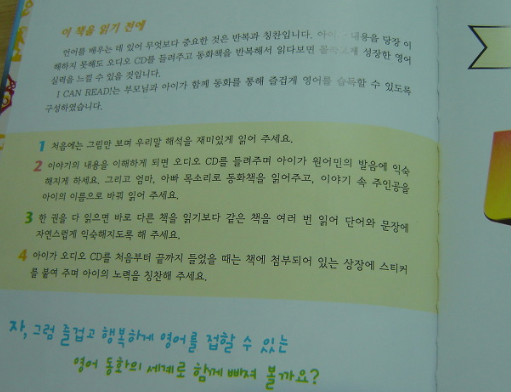 이 책을 읽기 전에
언어를 배우는 데 있어 무엇보다 중요한 것은 반복과 칭찬입니다. 내용을 당장 이
해하지 못해도 오디오 CD를 들려주고 동화책을 반복해서 읽다보면 성장한 영어
실력을 느낄 수 있을 것입니다.
I CAN READ!는 부모님과 아이가 함께 동화를 통해 즐겁게 영어를 습득할 수 있도록
구성하였습니다.
1 처음에는 그림만 보며 우리말 해석을 재미있게 읽어 주세요.
2 이야기의 내용을 이해하게 되면 오디오 CD를 들려주며 아이가 원어민의 발음에 익숙
해지게 하세요. 그리고 엄마, 아빠 목소리로 동화책을 읽어주고, 이야기 속 주인공을
아이의 이름으로 바꿔 읽어 주세요.
3 한 권을 다 읽으면 바로 다른 책을 읽기보다 같은 책을 여러 번 읽어 단어와 문장에
자연스럽게 익숙해지도록 해 주세요.
4 아이가 오디오 CD를 처음부터 끝까지 들었을 때는 책에 첨부되어 있는 상장에 스티커
를 붙여 주며 아이의 노력을 칭찬해 주세요.
자, 그럼 즐겁고 행복하게 영어를 접할 수 있는
영어 동화의 세계로 함께 빠져 볼까요?